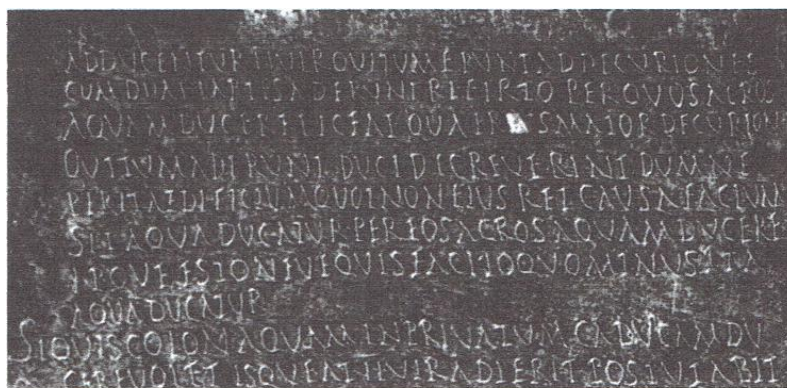 ADDUCENTUR IIVIR QUI TUM ERUNT AD DECURIONES
CUM DUAE PARTES ADERUNT REFERTO PER QUOS AGROS
AQUAM DUCERE LICEAT QUA PARS MAIOR DECURION
QUI TUM ADERUNT DUCI DECREVERINT DUM NE
PER IT AEDIFICIUM QUOT NON EIUS REI CAUSA FACTUM
SIT AQUA DUCATUR PER EOS AGROS AQUAM DUCERE
I P QUE ESTO NEVE QUIS FACITO QUO MINUS ITA
AQUA DUCATUR
SI QUIS COLON AQUAM IN PRIVATUM CADUCAM DU
CERE VOLET ISQUE AT IIVIR ADIERIT POSTULABIT